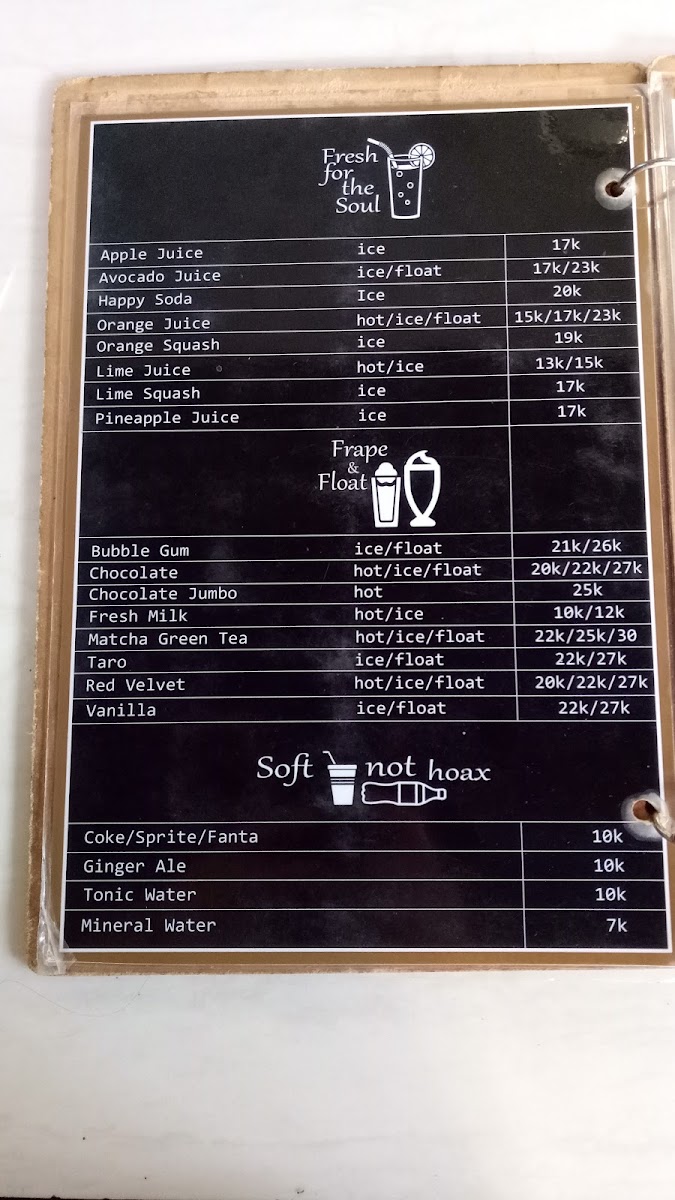 Fresh
for
the
Soul
Apple Juice ice 17k
Avocado Juice ice/float 17k/23k
Happy Soda Ice 20k
Orange Juice hot/ice/float 15k/17k/23k
Orange Squash ice 19k
Lime Juice hot/ice 13k/15k
Lime Squash ice 17k
Pineapple Juice ice 17k
Frape
&
Float
Bubble Gum ice/float 21k/26k
Chocolate hot/ice/float 20k/22k/27k
Chocolate Jumbo hot 25k
Fresh Milk hot/ice 10k/12k
Matcha Green Tea hot/ice/float 22k/25k/30
Taro ice/float 22k/27k
Red Velvet hot/ice/float 20k/22k/27k
Vanilla ice/float 22k/27k
Soft not hoax
Coke/Sprite/Fanta 10k
Ginger Ale 10k
Tonic Water 10k
Mineral Water 7k